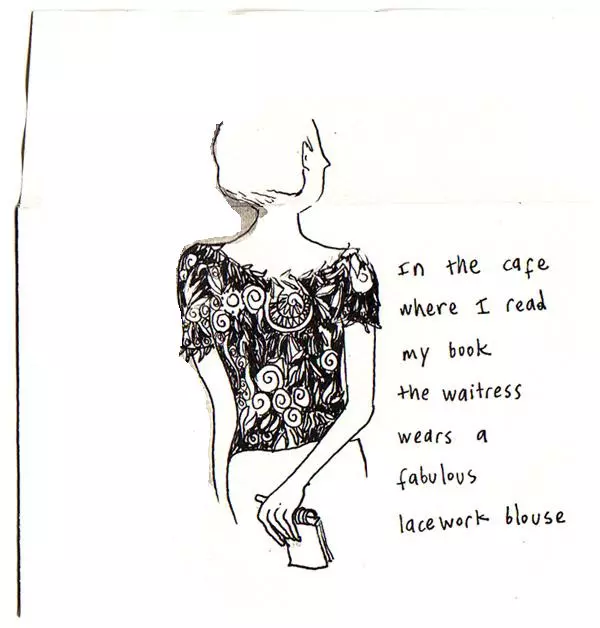 In the cafe
where I read
my book
the waitress
wears a
fabulous
lacework blouse